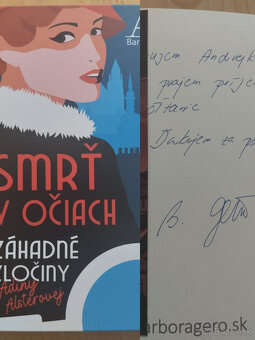 A
Bar
SMRŤ
V OČIACH
ZÁHADNÉ
ZLOČINY
Adiny
Alsterovej
ujem Andrejk
Ďakujem za po
B.
arboragero.sk